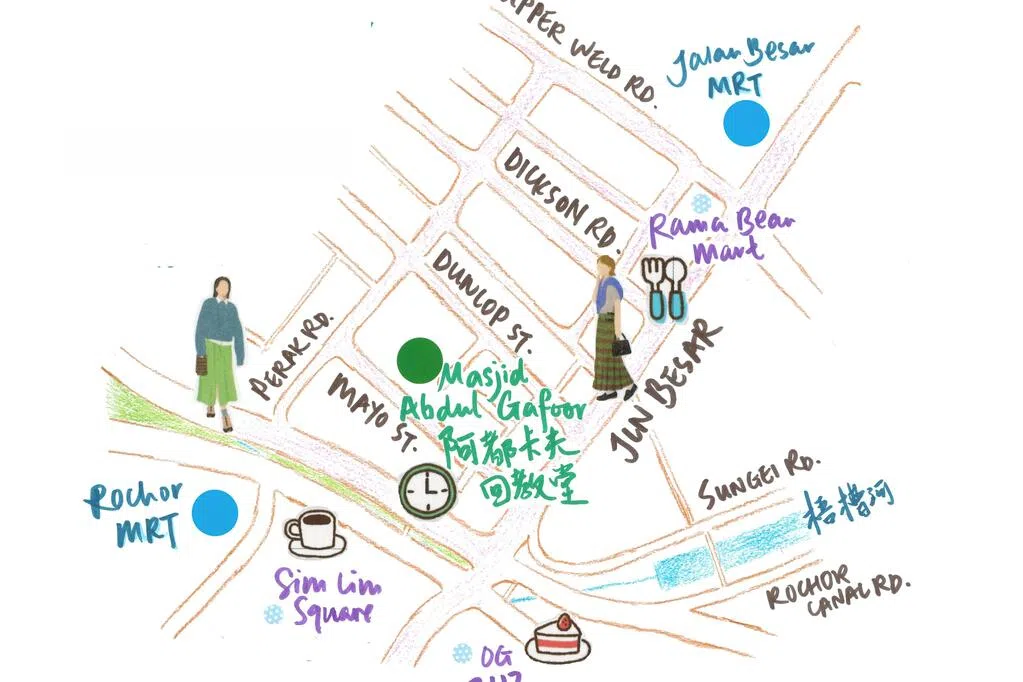 UPPER WELD RD.
Jalan Besar
MRT
DICKSON RD.
Rama Bear
Mart
DUNLOP ST.
PERAK RD.
MAYO ST.
Masjid
Abdul Gafoor
阿都卡夫
回教堂
JLN BESAR
SUNGEI RD.
梧槽河
ROCHOR
CANAL RD.
Rochor
MRT
Sim Lim
Square
OG